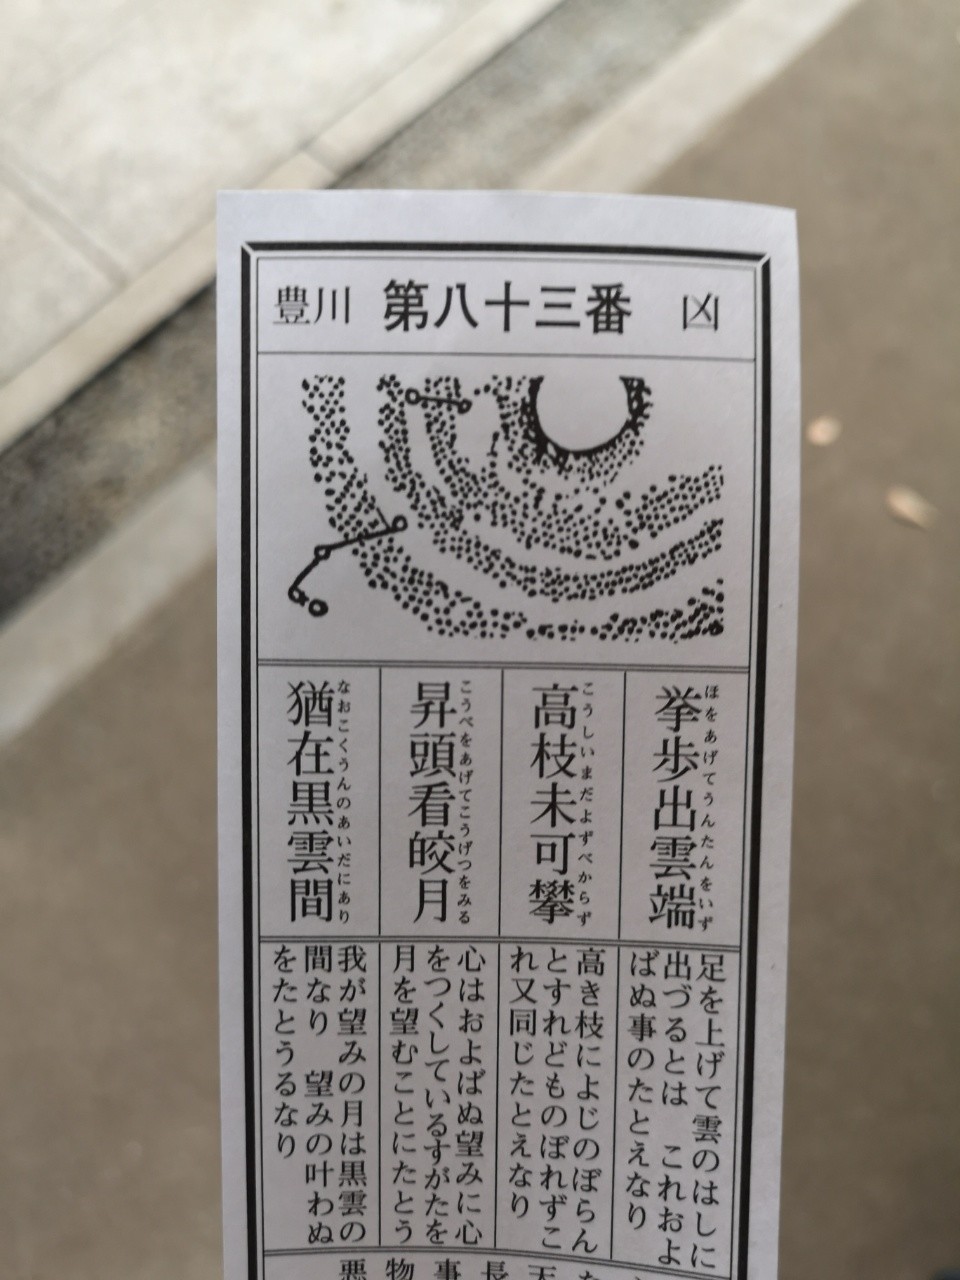 豊川 第八十三番 凶
挙歩出雲端
ほをあげてうんたんをいず
高枝未可攀
こうしいまだよずべからず
昇頭看皎月
こうべをあげてこうげつをみる
猶在黒雲間
なおこくうんのあいだにあり
足を上げて雲のはしに
出づるとは これおよ
ばぬ事のたとえなり
高き枝によじのぼらん
とすれどものぼれずこ
れ又同じたとえなり
心はおよばぬ望みに心
をつくしているすがたを
月を望むことにたとう
我が望みの月は黒雲の
間なり 望みの叶わぬ
をたとうるなり
長
事
物
悪